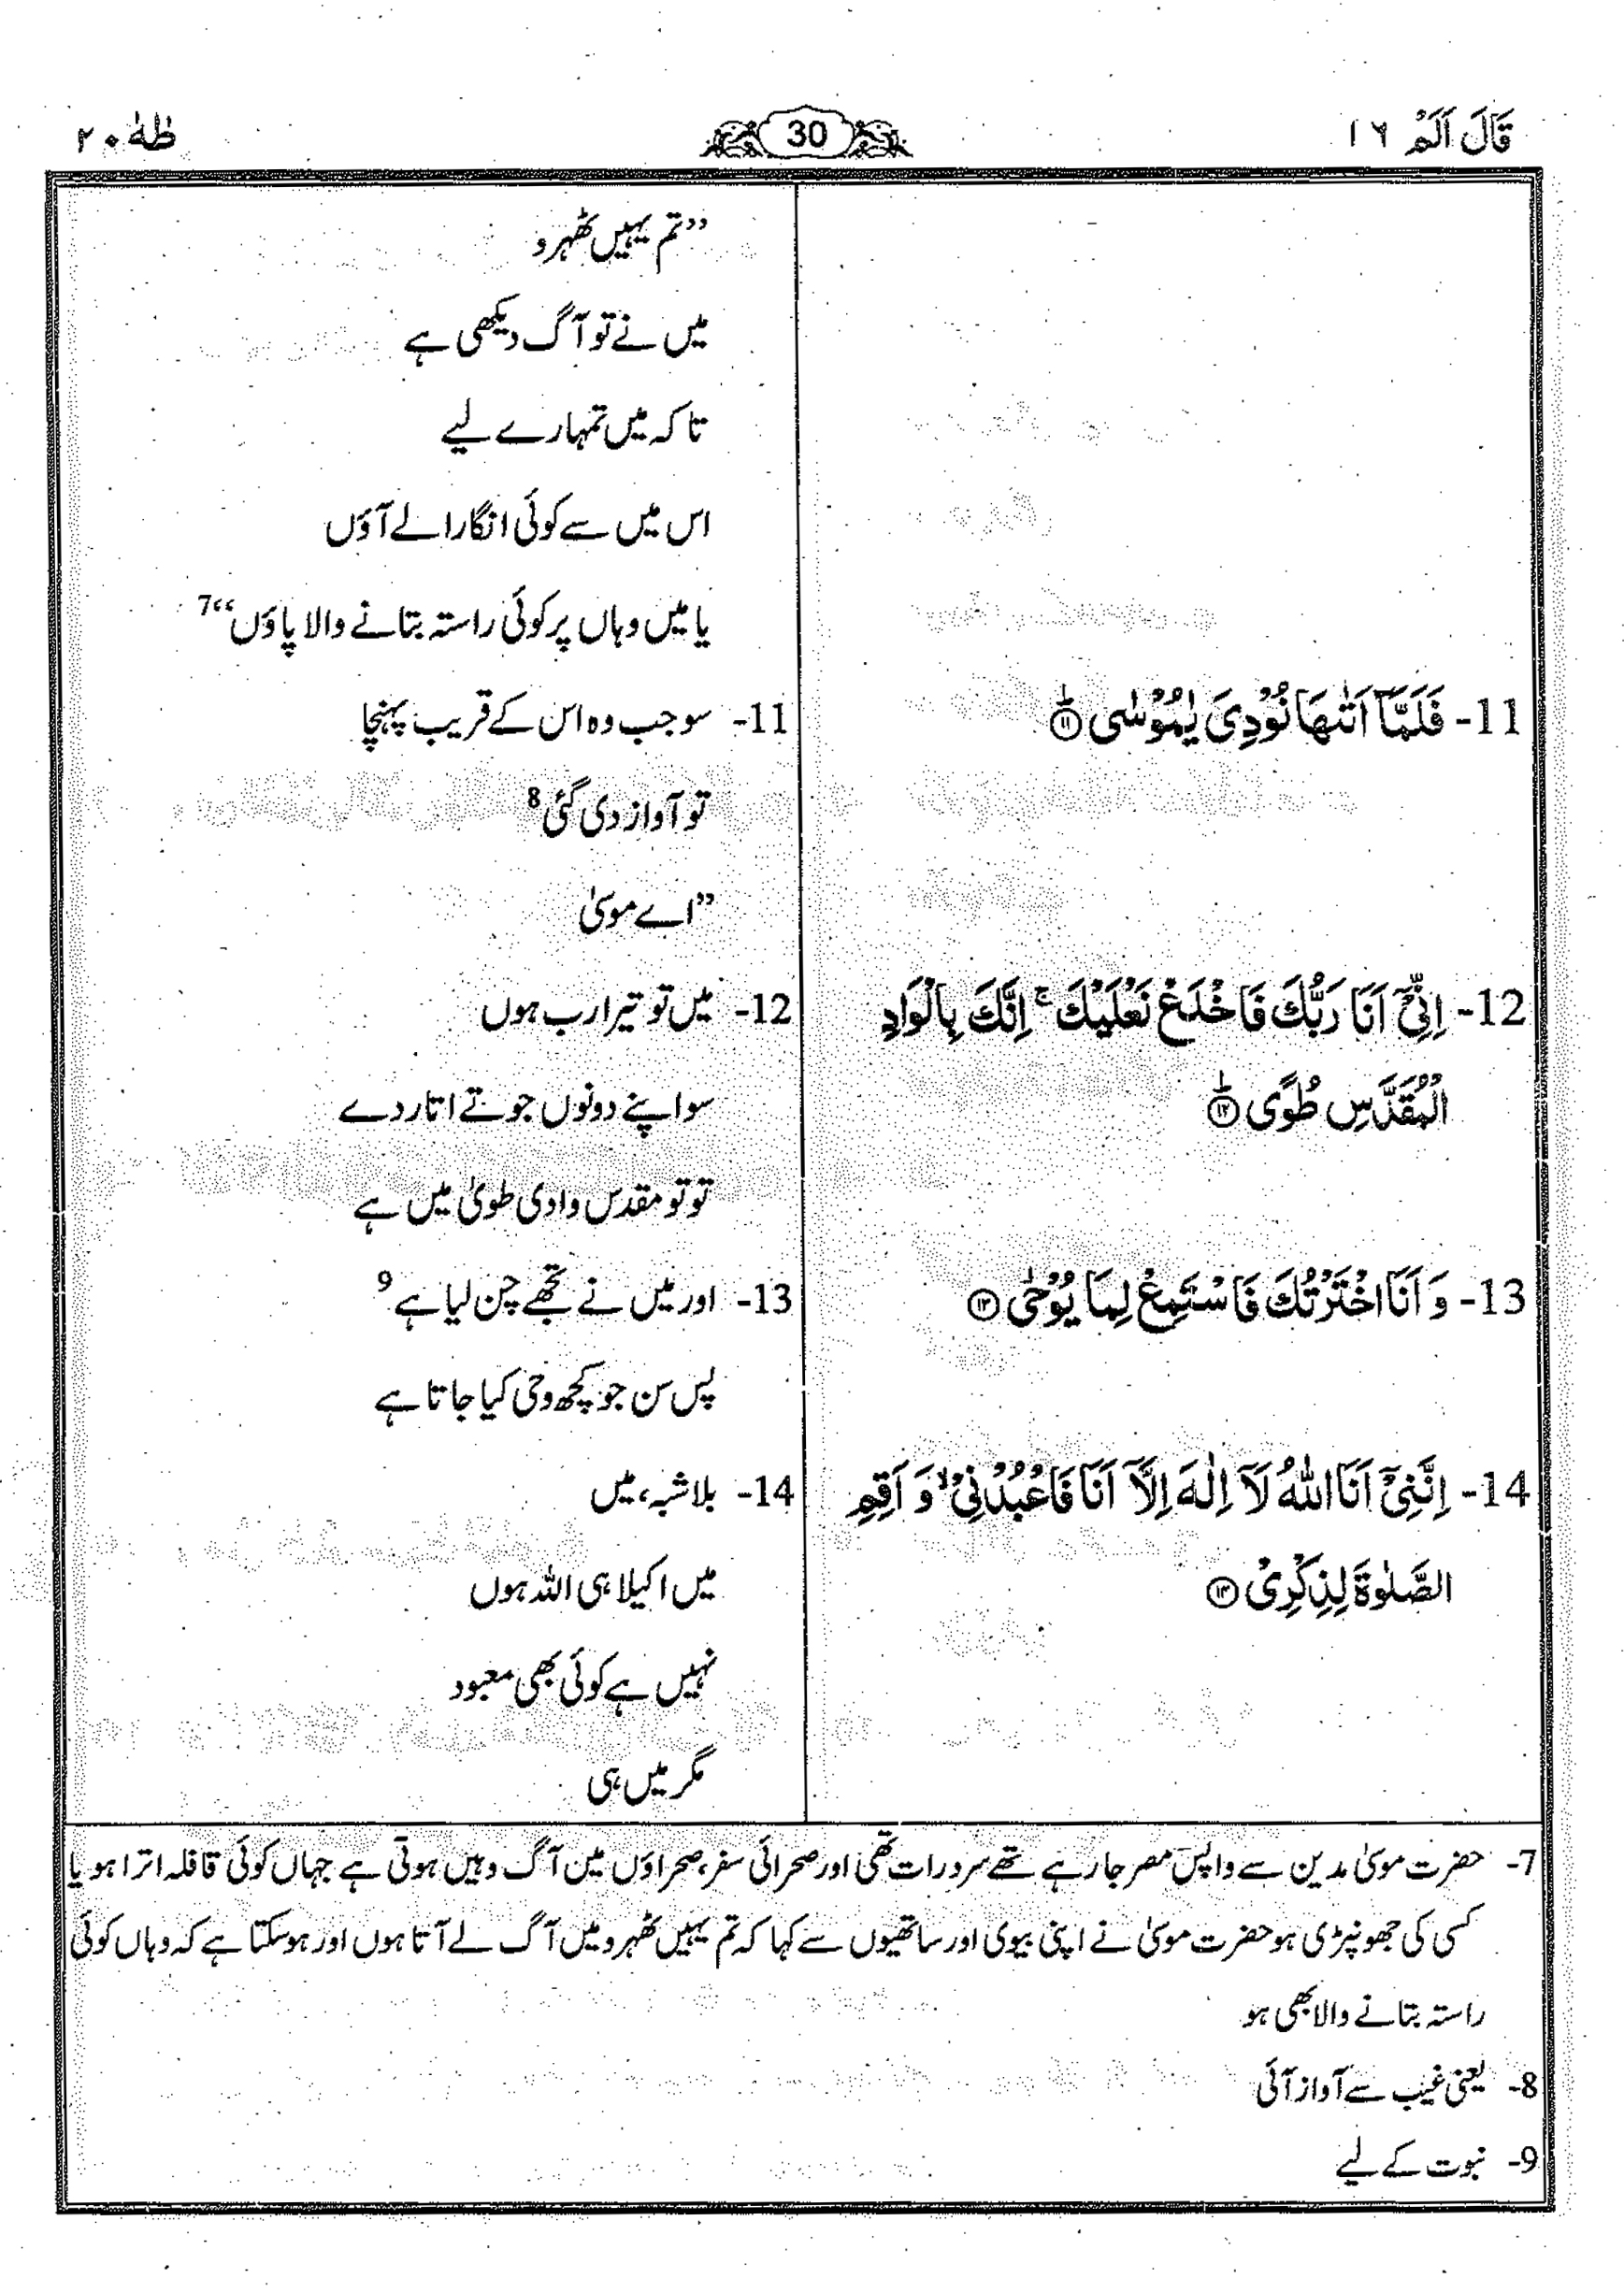 قَالَ اَلَمۡ ١٦
30
طٰهٰ ٢٠
”تم یہیں ٹھہرو
میں نے تو آگ دیکھی ہے
تاکہ میں تمہارے لیے
اس میں سے کوئی انگارا لے آؤں
یا میں وہاں پر کوئی راستہ بتانے والا پاؤں“7
11- فَلَمَّاۤ اَتٰىهَا نُوۡدِیَ یٰمُوۡسٰی ؕ﴿۱۱﴾
11- سو جب وہ اس کے قریب پہنچا
تو آواز دی گئی8
”اے موسیٰ
12- اِنِّیۡۤ اَنَا رَبُّكَ فَاخۡلَعۡ نَعۡلَیۡكَ ۚ اِنَّكَ بِالۡوَادِ
الۡمُقَدَّسِ طُوًی ؕ﴿۱۲﴾
12- میں تو تیرا رب ہوں
سو اپنے دونوں جوتے اتار دے
تو تو مقدس وادی طویٰ میں ہے
13- وَ اَنَا اخۡتَرۡتُكَ فَاسۡتَمِعۡ لِمَا یُوۡحٰی ﴿۱۳﴾
13- اور میں نے تجھے چن لیا ہے9
پس سن جو کچھ وحی کیا جاتا ہے
14- اِنَّنِیۡۤ اَنَا اللّٰهُ لَاۤ اِلٰهَ اِلَّاۤ اَنَا فَاعۡبُدۡنِیۡ ۙ وَ اَقِمِ
الصَّلٰوةَ لِذِكۡرِیۡ ﴿۱۴﴾
14- بلاشبہ، میں
میں اکیلا ہی اللہ ہوں
نہیں ہے کوئی بھی معبود
مگر میں ہی
7- حضرت موسیٰ مدین سے واپس مصر جا رہے تھے سرد رات تھی اور صحرائی سفر، صحراؤں میں آگ وہیں ہوتی ہے جہاں کوئی قافلہ اترا ہو یا
کسی کی جھونپڑی ہو حضرت موسیٰ نے اپنی بیوی اور ساتھیوں سے کہا کہ تم یہیں ٹھہرو میں آگ لے آتا ہوں اور ہوسکتا ہے کہ وہاں کوئی
راستہ بتانے والا بھی ہو
8- یعنی غیب سے آواز آئی
9- نبوت کے لیے